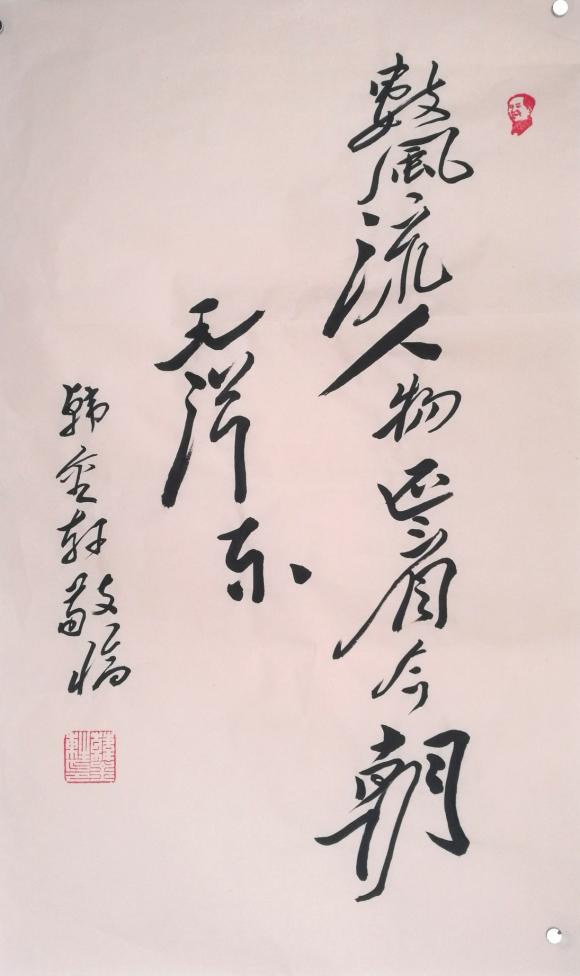 數風流人物還看今朝
毛泽东
韩金轩敬临